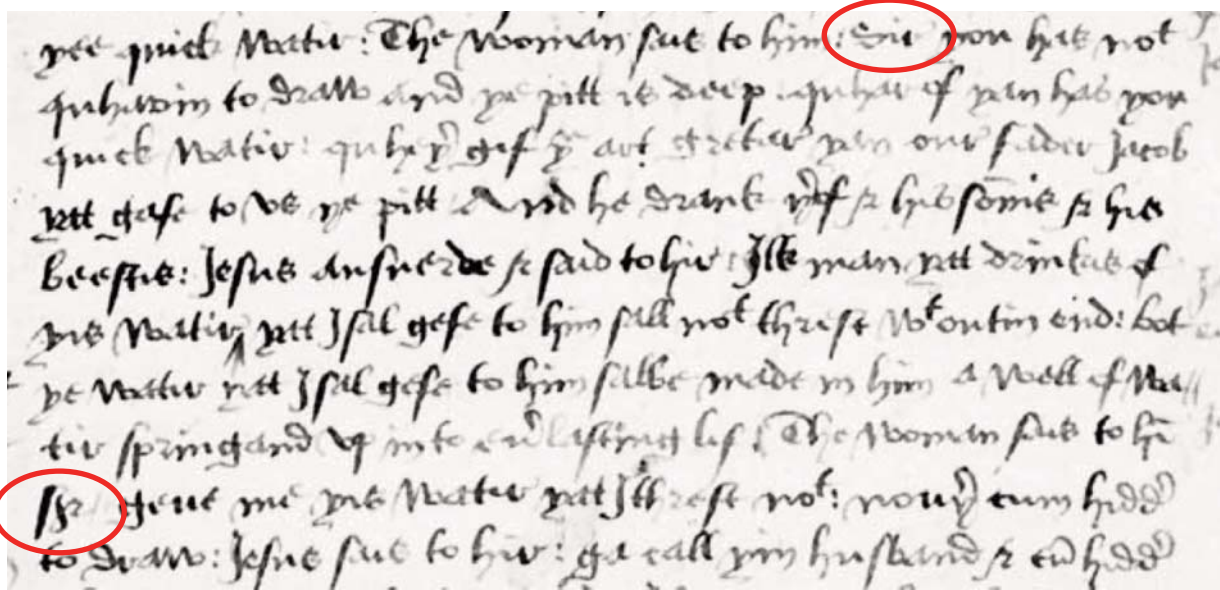 yee quick watir: The woman sais to him: Sir you has not
quharin to draw and ye pitt is deep. quhar of yan has you
quick watir: quheyer gif yu art gretar yan our fader Jacob
yat gafe to vs ye pitt And he drank yerof & his sonnis & his
beestis: Jesus ansuerde & said to hir: Ilk man yatt drinkis of
yis watir yatt I sal gefe to him sall not threst wtoutin end: bot
ye watir yatt I sal gefe to him salbe made in him a well of wa
tir springand vp into euirlasting lif. The woman sais to him
Schir geue me yis watir yatt I threst not: nouyer cum hidder
to draw: Jesus sais to hir: ga call yin husband & cum hidder